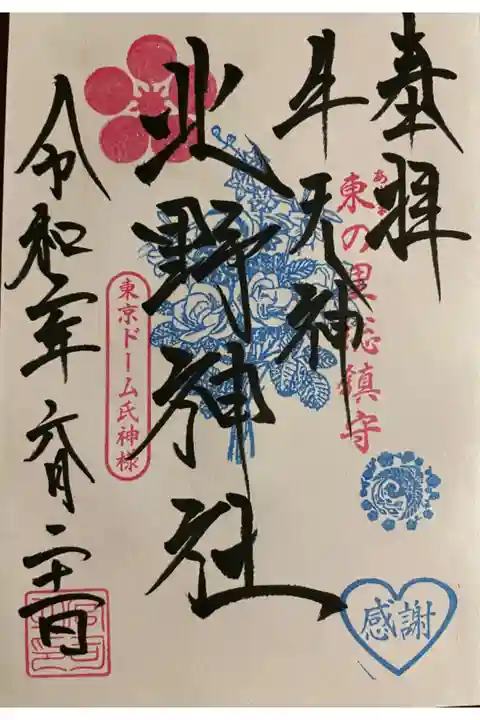 奉拝
東の里総鎮守
牛天神
北野神社
東京ドーム氏神様
令和六年六月二十二日
感謝